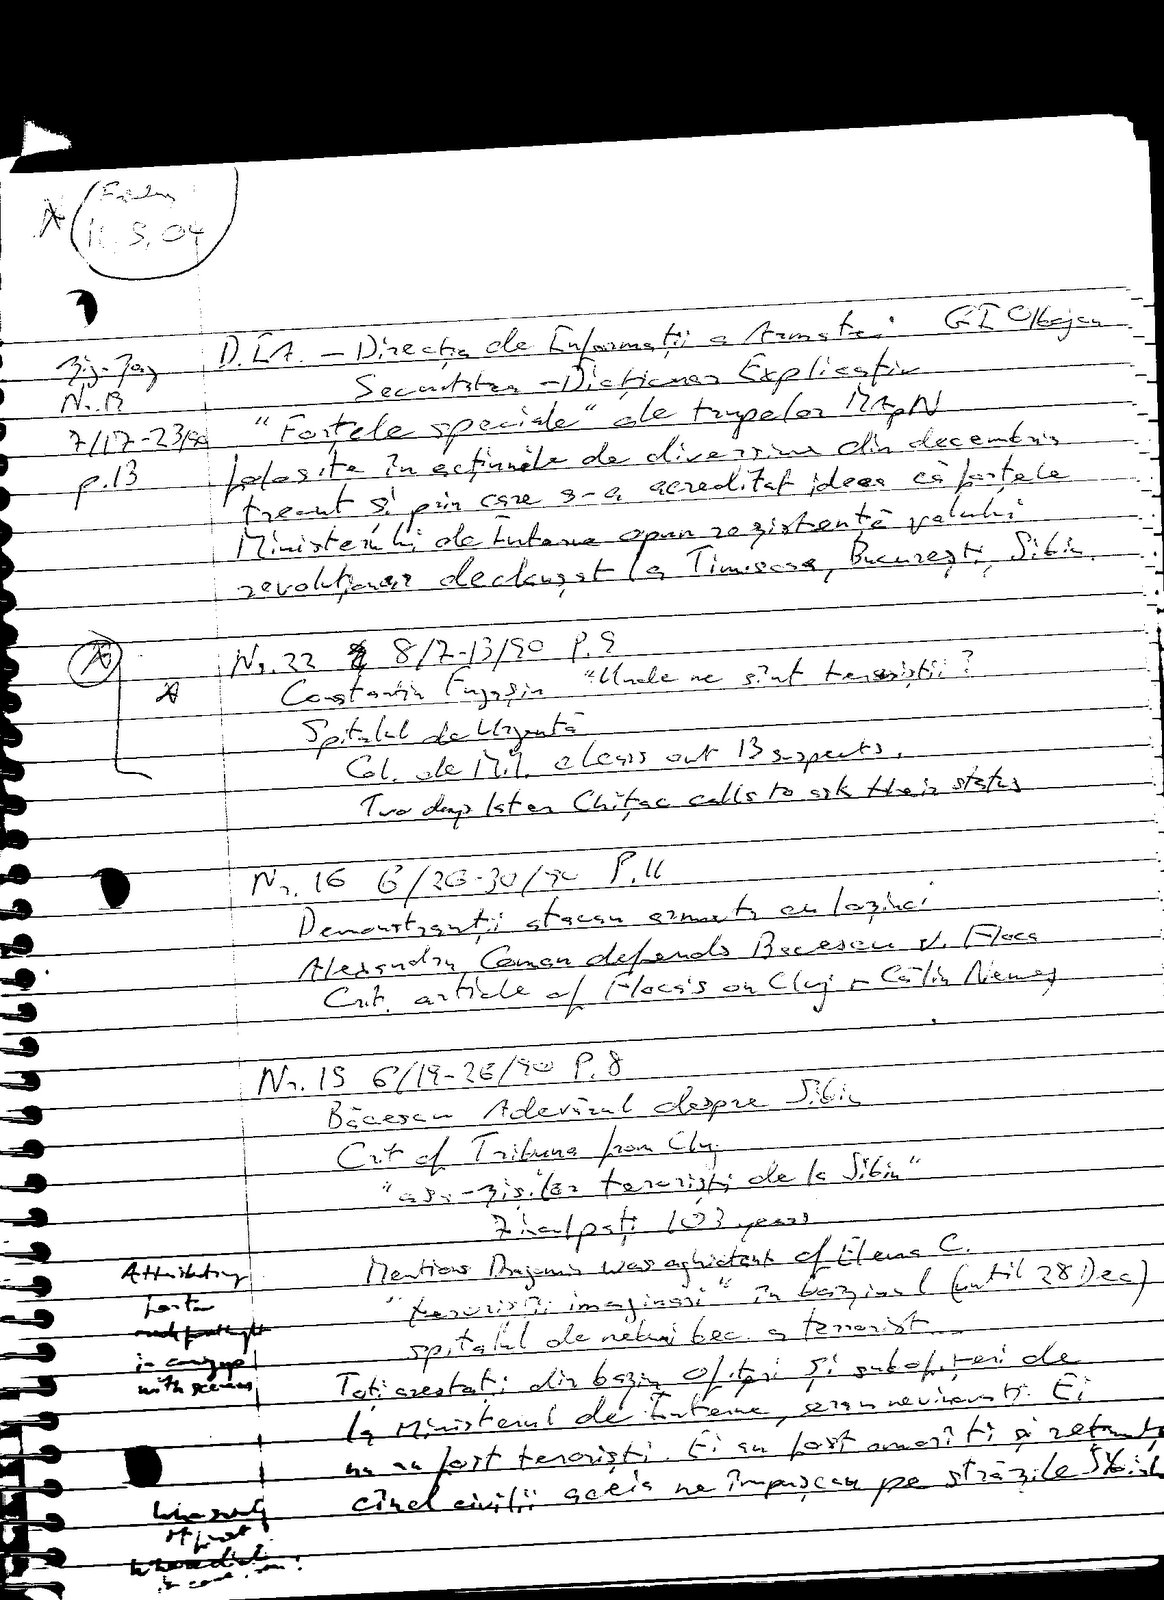 Friday
11.5.04
Zig-Zag
Nr. 13
7/17-23/90
p.13
D.I.A. – Direcția de Informații a Armatei. GI Olbojan
Securitatea – Dicționar Explicativ
"Forțele speciale" ale trupelor MApN
folosite în acțiunile de diversiune din decembrie
trecut și prin care s-a acreditat ideea că forțele
Ministerului de Interne opun rezistență valului
revoluționar declanșat la Timisoara, București, Sibiu.
Nr. 22 8/7-13/90 P. 9
Constantin "Unde ne sînt teroriștii?
Spitalul de Urgență
Col. de M.I. clears out 13 suspects.
Two days later Chițac calls to ask their status
Nr. 16 6/26-30/90 P. 11
Demonstranții atacau armata cu lozinci
Alexandru Coman defends Bacescu v. Floca
Crit. article of Floca's on Cluj + Călin Nemeș
Nr. 15 6/19-26/90 P. 8
Băcescu Adevărul despre Sibiu
Crit of Tribuna from Cluj
"așa-zișilor teroriști de la Sibiu"
7 inculpați 103 years
Mentions was aghiotant of Elena C.
"teroriștii imaginari" în bazinul (until 28 Dec)
spitalul de nebuni bec. a terrorist...
Toți arestații din bazin ofițeri și subofițeri de
la Ministerul de Interne, erau nevinovați. Ei
nu au fost teroriști. Ei au fost omorîți și
cînd civilii aceia ne împușcau pe străzile
Attributing
with